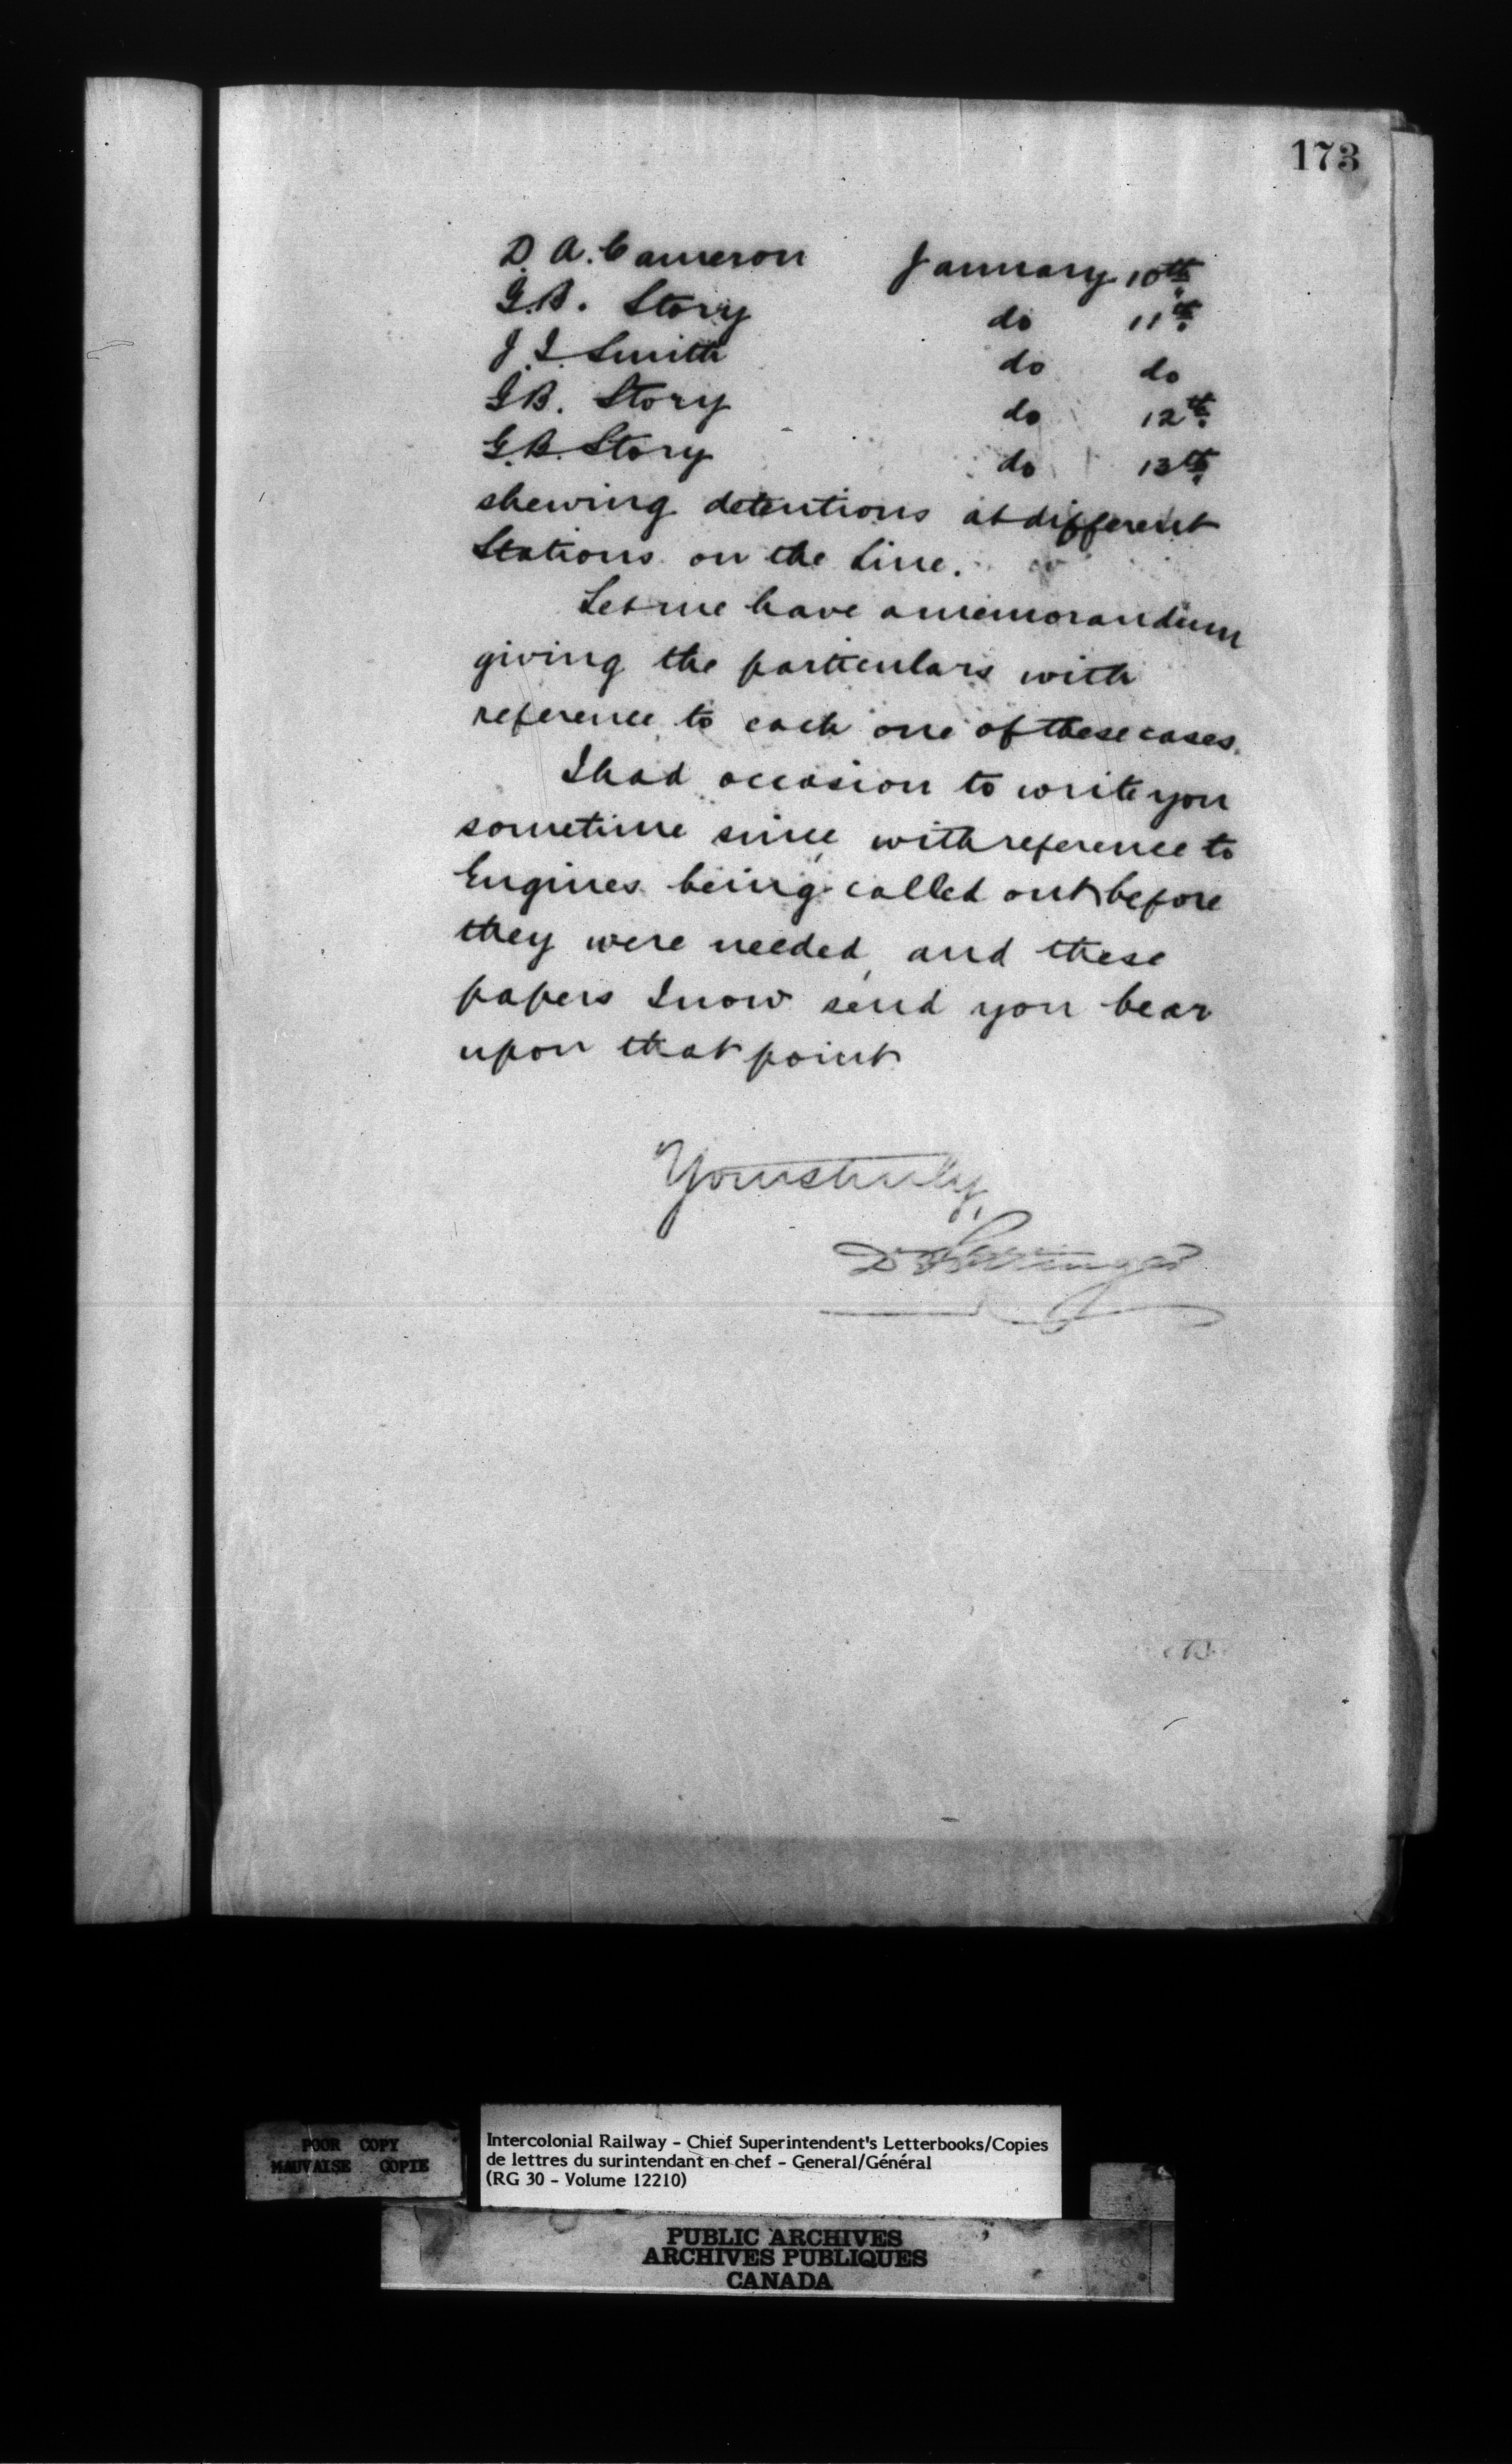 173
D. A. Cameron January 10th
G.B. Story do 11th
J. I. Smith do do
G.B. Story do 12th
G.B. Story do 13th
shewing detentions at different
Stations on the Line.
Let me have a memorandum
giving the particulars with
reference to each one of these cases.
I had occasion to write you
sometime since with reference to
Engines being called out before
they were needed, and these
papers I now send you bear
upon that point
Yours truly,
D Pottinger
POOR COPY
MAUVAISE COPIE
Intercolonial Railway - Chief Superintendent's Letterbooks/Copies
de lettres du surintendant en chef - General/Général
(RG 30 - Volume 12210)
PUBLIC ARCHIVES
ARCHIVES PUBLIQUES
CANADA